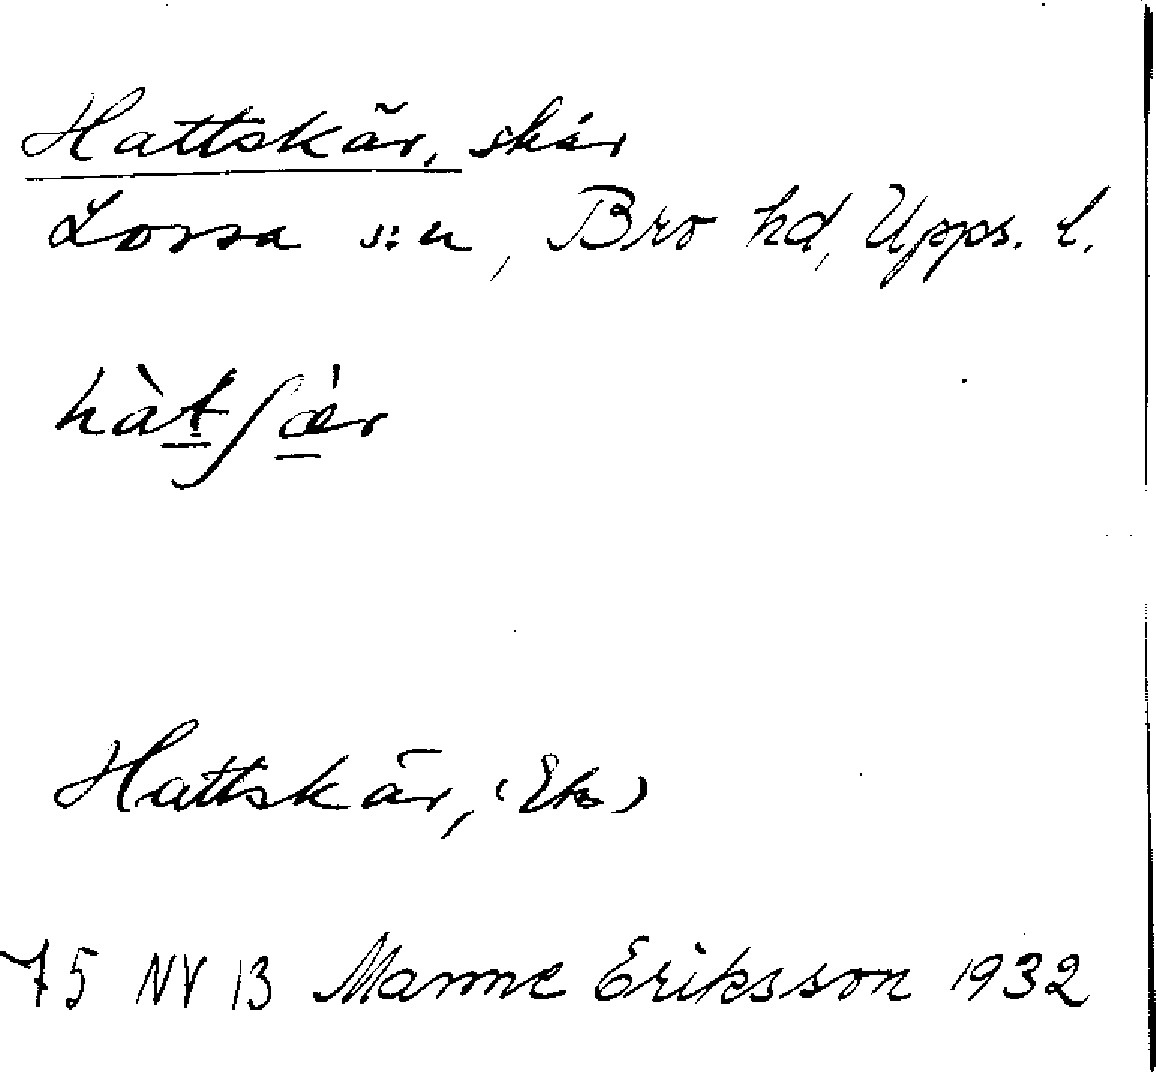 Hattskär, skär
Lossa s:n, Bro hd, Upps. l.
hàt∫æ̀r
Hattskär, (Ek)
75 NV 13 Manne Eriksson 1932